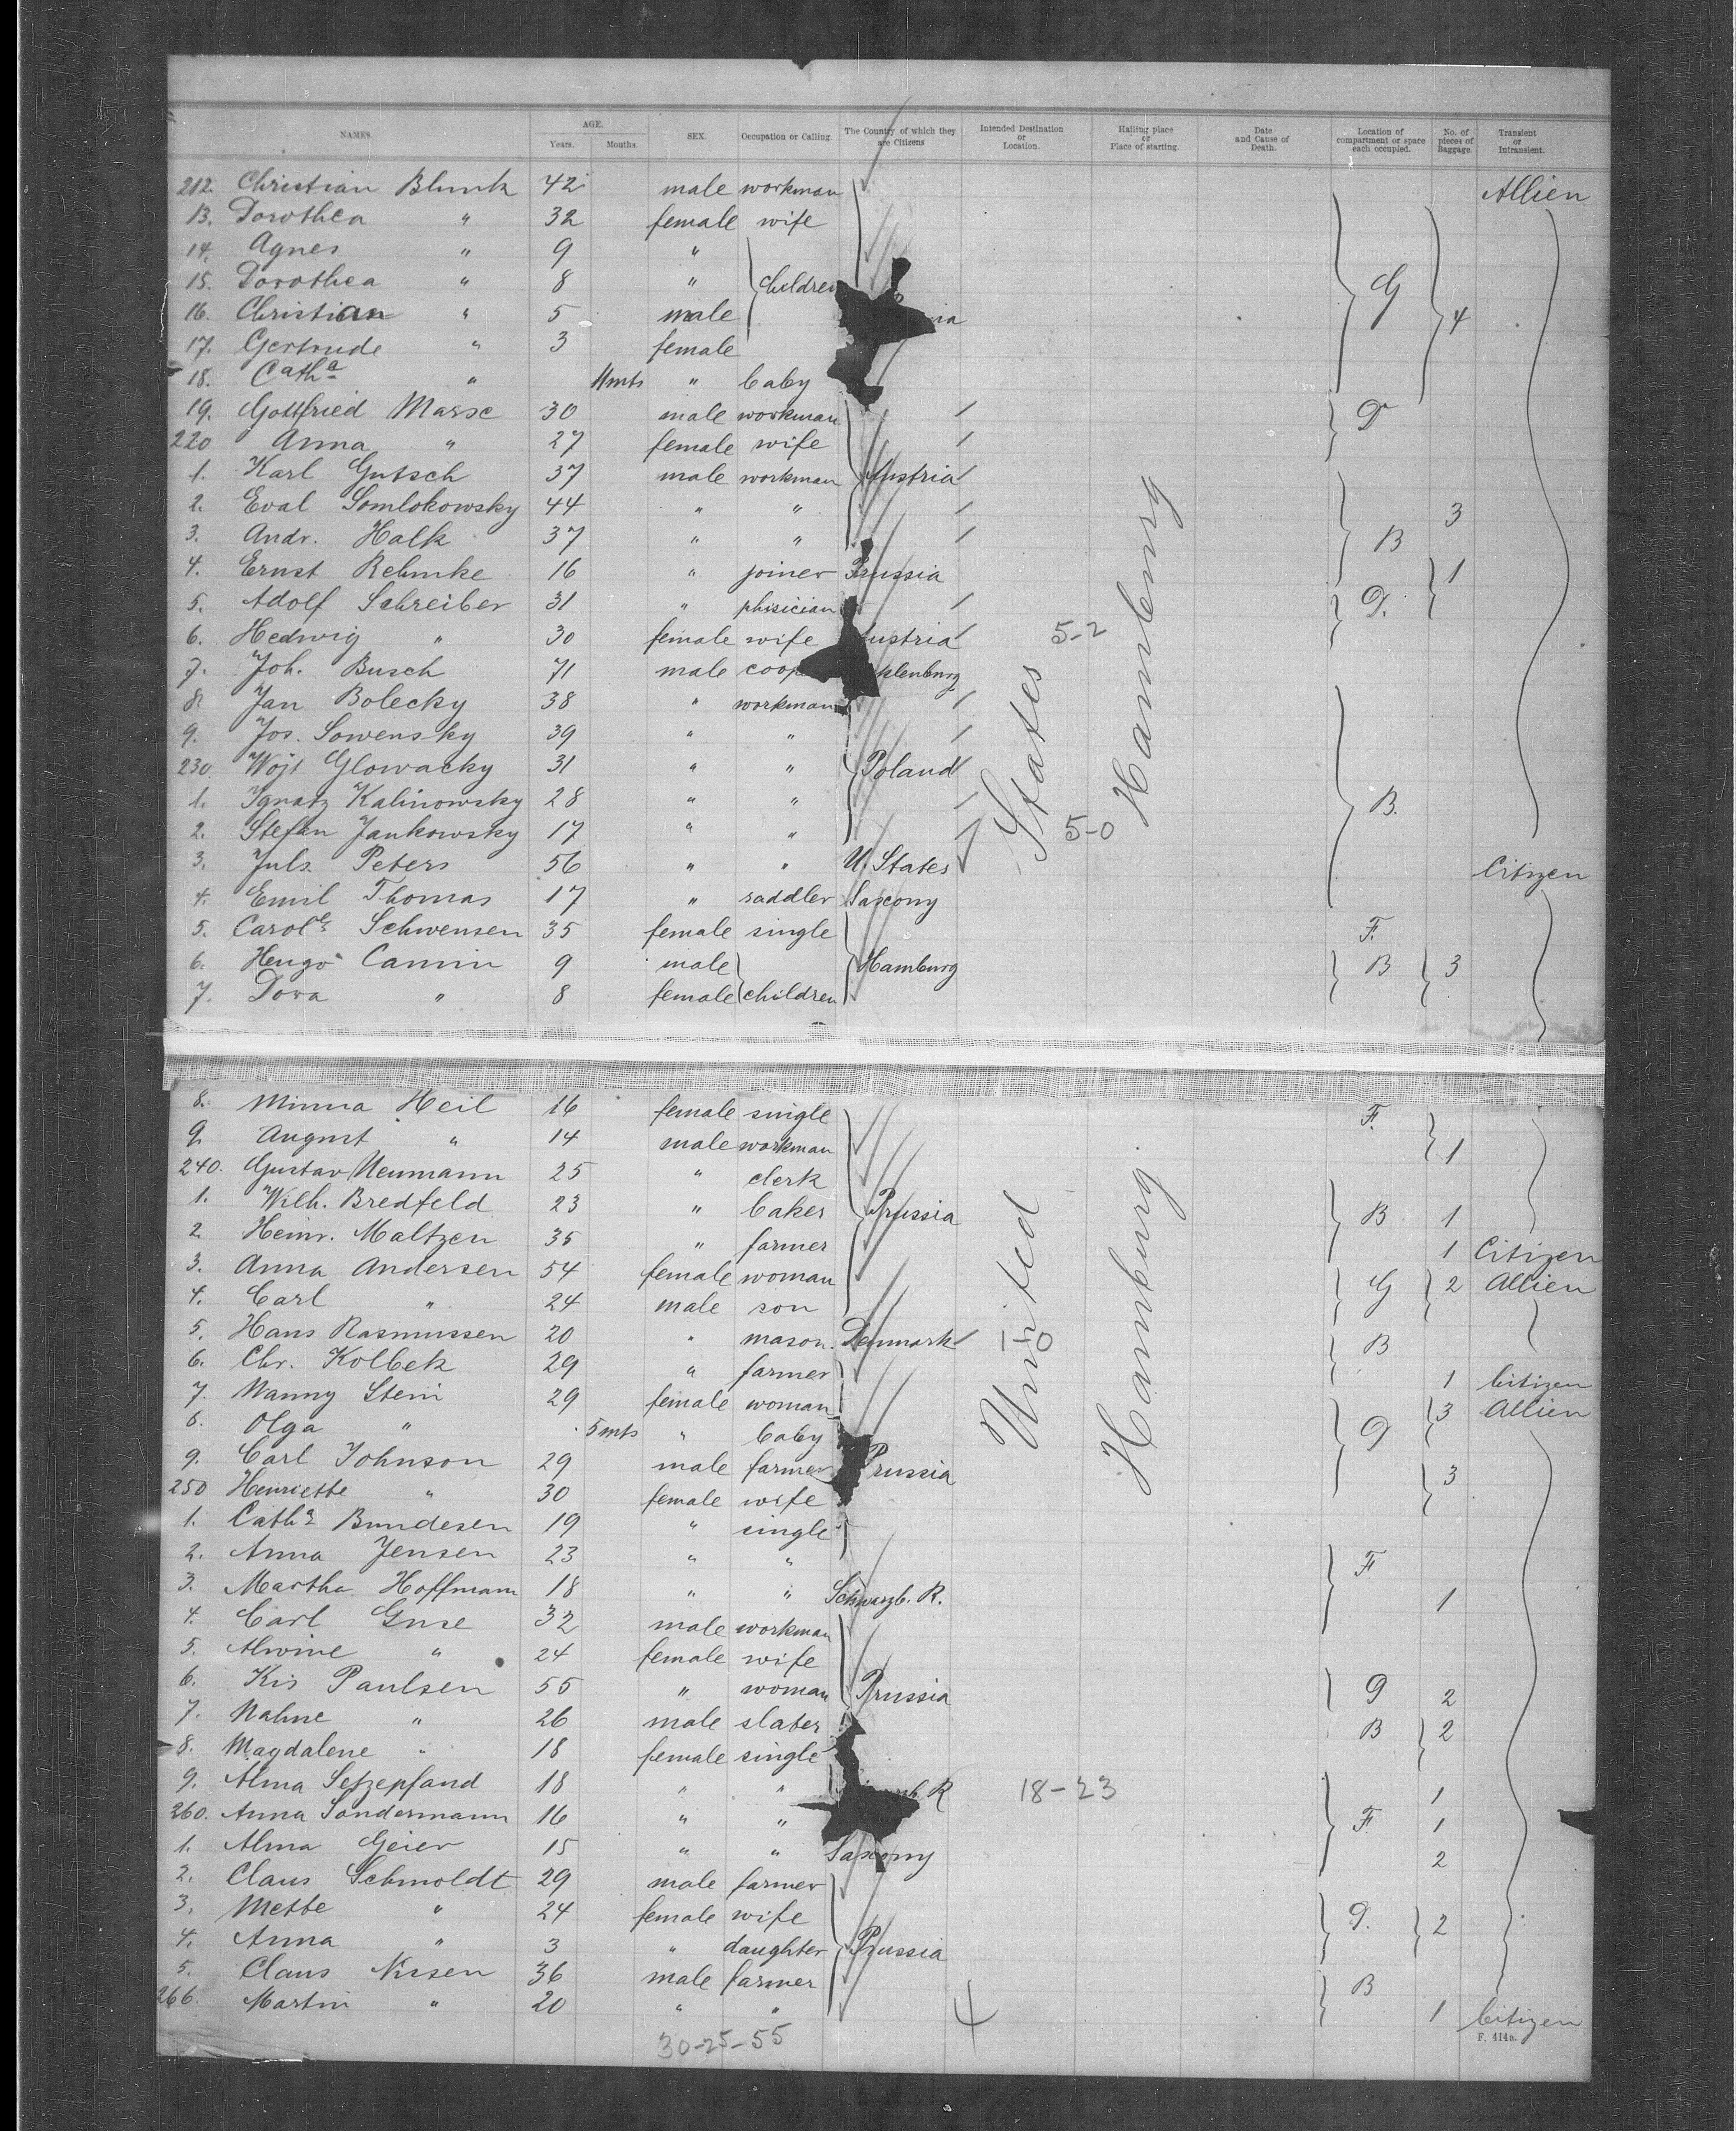 NAMES. AGE. Years. Months. SEX. Occupation or Calling. The Country of which they are Citizens Intended Destination or Location. Hailing place or Place of starting. Date and Cause of Death. Location of compartment or space each occupied. No. of pieces of Baggage. Transient or Intransient.
212. Christian Blunk 42 male workman Allien
13. Dorothea " 32 female wife
14. Agnes " 9 "
15. Dorothea " 8 " children G
16. Christian " 5 male 4
17. Gertrude " 3 female
18. Catha " 11mts " baby
19. Gottfried Marse 30 male workman
220 Anna " 27 female wife
1. Karl Gutsch 37 male workman Austria
2. Eval Somlokowsky 44 " " 3
3. Andr. Halk 37 " " B
4. Ernst Rehmke 16 " joiner Prussia 1
5. Adolf Schreiber 31 " phisician
6. Hedwig " 30 female wife Austria 5-2
7. Joh. Busch 71 male
8. Jan Bolecky 38 " workman
9. Jos. Sowensky 39 " "
230. Wojt Glowacky 31 " " Poland
1. Ignatz Kalinowsky 28 " " B.
2. Stefan Jankowsky 17 " " 5-0
3. Juls Peters 56 " " U. States Citizen
4. Emil Thomas 17 " saddler Saxony
5. Carole Schwensen 35 female single F.
6. Hugo Camin 9 male Hamburg B 3
7. Dora " 8 female children
States Hamburg
8. Minna Heil 16 female single F.
9. August " 14 male workman 1
240. Gustav Neumann 25 " clerk
1. Wilh. Bredfeld 23 " baker Prussia B 1
2. Heinr. Maltzen 35 " farmer 1 Citizen
3. Anna Andersen 54 female woman G 2 Allien
4. Carl " 24 male son
5. Hans Rasmussen 20 " mason. Denmark 1-0 B
6. Chr. Kolbek 29 " farmer 1 Citizen
7. Nanny Stein 29 female woman 3 Allien
8. Olga " 5mts " baby
9. Carl Johnson 29 male farmer Prussia 3
250 Henriette " 30 female wife
1. Catha Bundesen 19 " single
2. Anna Jensen 23 " " F
3. Martha Hoffmann 18 " " Schwarzb. R. 1
4. Carl Guse 32 male workman
5. Alwine " 24 female wife
6. Kis Paulsen 55 " woman Prussia G 2
7. Nahne " 26 male slater B 2
8. Magdalene " 18 female single
9. Alma Setzepfand 18 " " R 18-23 1
260. Anna Sondermann 16 " " F. 1
1. Alma Geier 15 " " Saxony 2
2. Claus Schmoldt 29 male farmer
3. Mette " 24 female wife G. 2
4. Anna " 3 " daughter Prussia
5. Claus Nissen 36 male farmer B
266. Martin " 20 " " 1 Citizen
United Hamburg.
30-25-55
4
F. 414a.